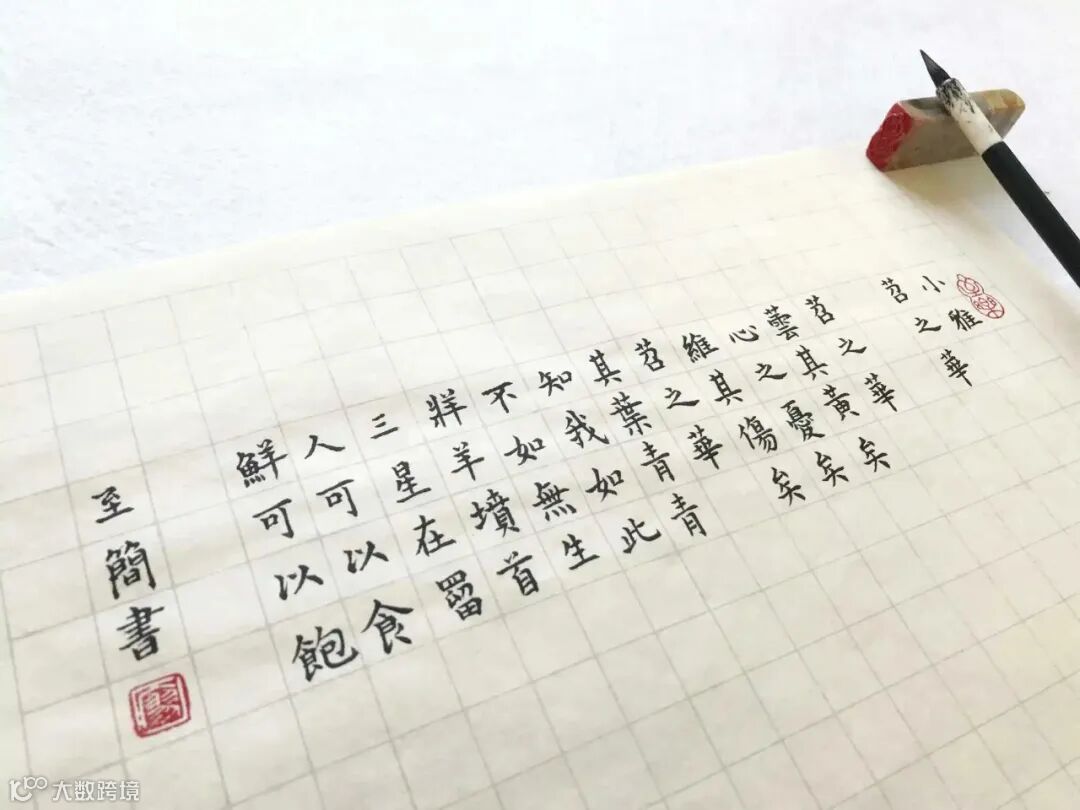 小雅
苕之華
苕之華
蕓其黃矣
心之憂矣
維其傷矣
苕之華
其葉青青
知我如此
不如無生
牂羊墳首
三星在罶
人可以食
鮮可以飽
至簡書
大数跨境